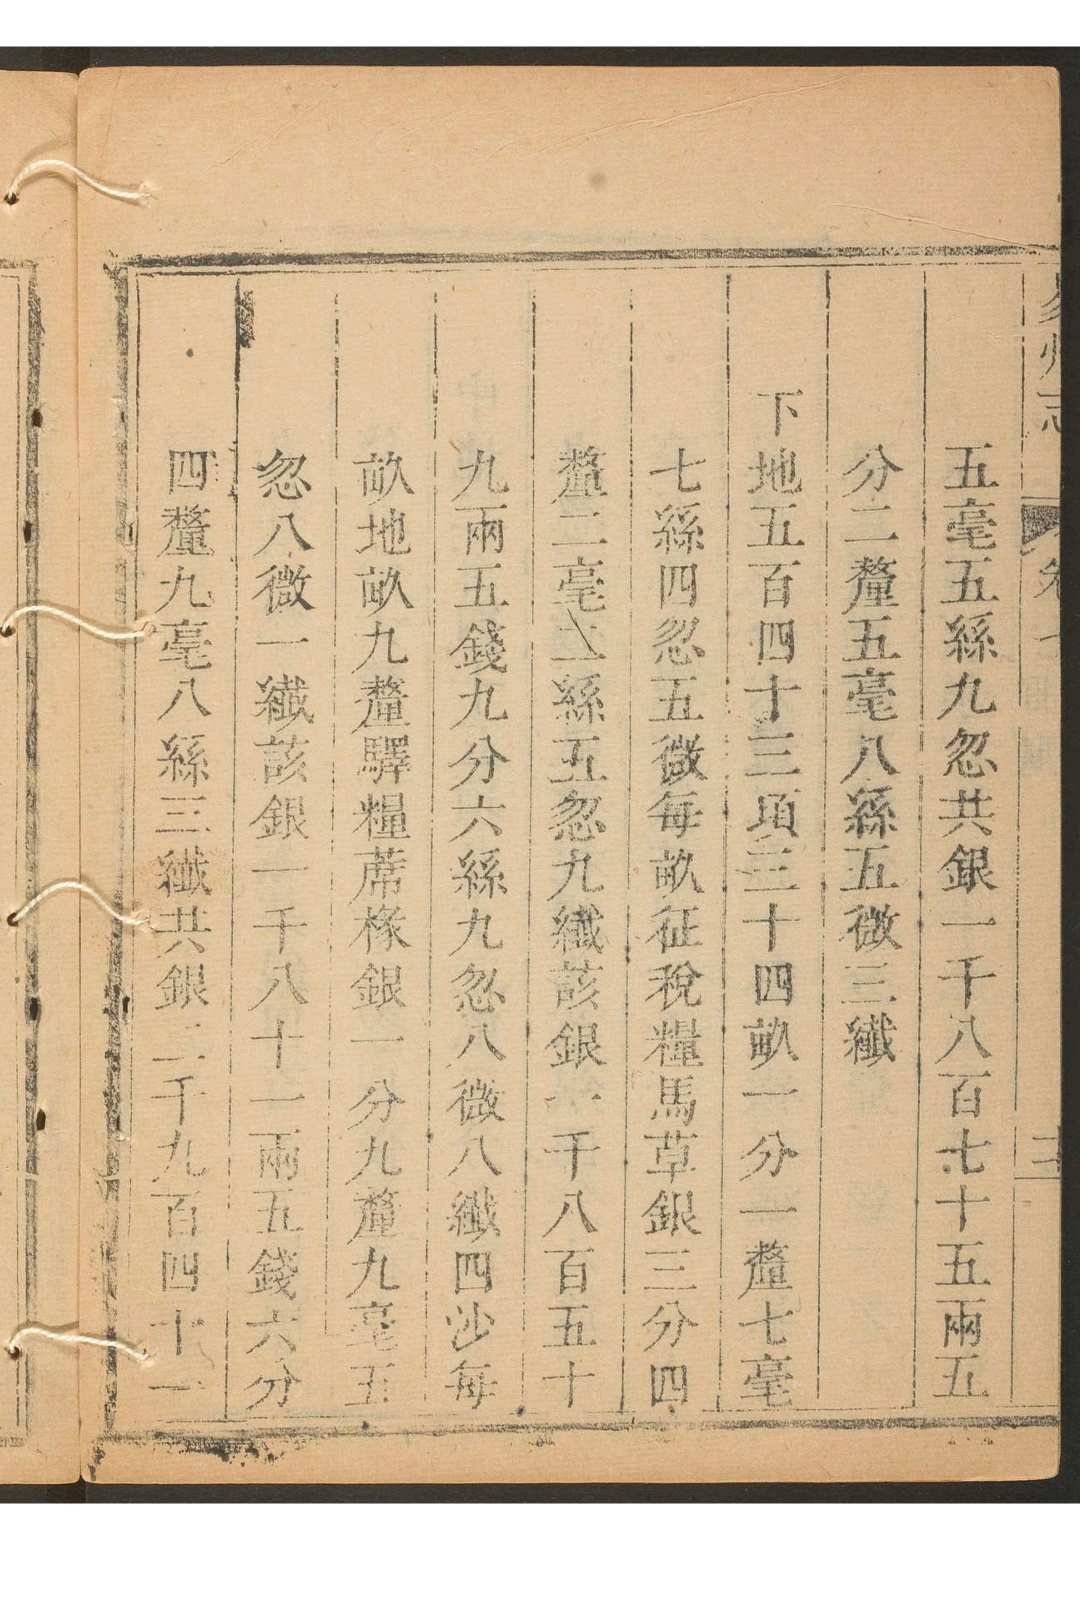 五毫五絲九忽共銀一千八百七十五兩五
分二釐五毫八絲五微三纖
下地五百四十三項三十四畝一分一釐七毫
七絲四忽五微每畝征稅糧馬草銀三分四
釐二毫二絲五忽九纖該銀一千八百五十
九兩五錢九分六絲九忽八微八纖四沙每
畝地畝九釐驛糧蓆椽銀一分九釐九毫五
忽八微一纖該銀一千八十一兩五錢六分
四釐九毫八絲三纖共銀二千九百四十一